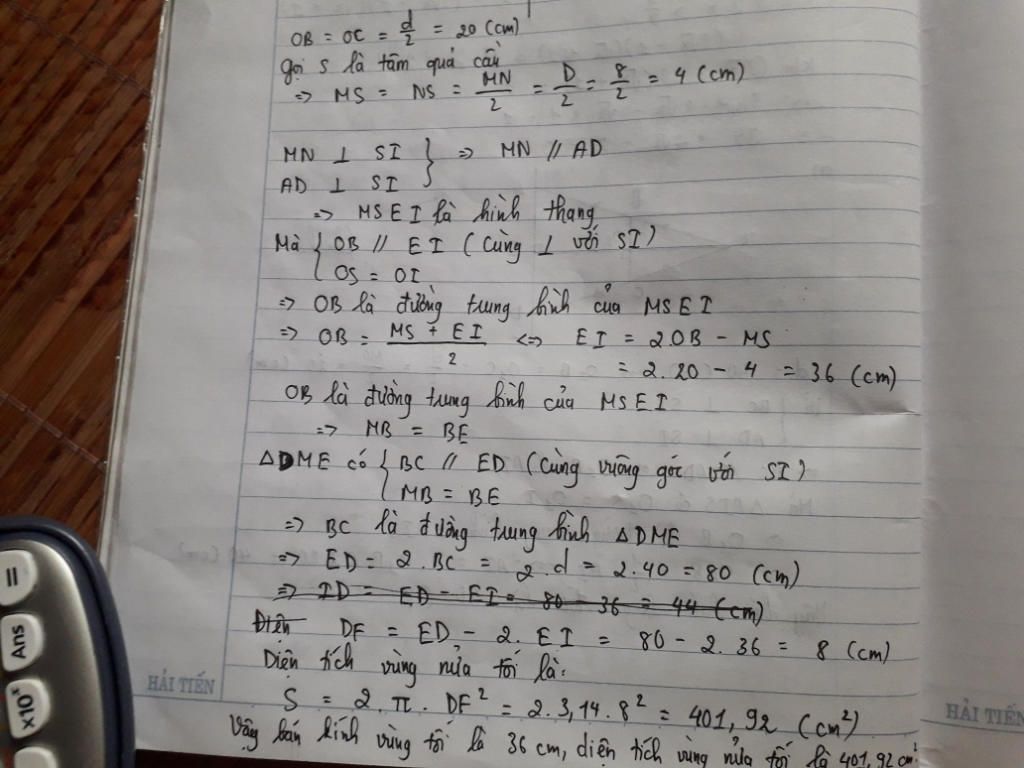 OB = OC = d/2 = 20 (cm)
gọi S là tâm quả cầu
=> MS = NS = MN/2 = D/2 = 8/2 = 4 (cm)
MN ⊥ SI } => MN // AD
AD ⊥ SI
=> MSEI là hình thang
Mà { OB // EI (cùng ⊥ với SI)
OS = OI
=> OB là đường trung bình của MSEI
=> OB = (MS + EI)/2 <=> EI = 2OB - MS
= 2.20 - 4 = 36 (cm)
OB là đường trung bình của MSEI
=> MB = BE
ΔDME có { BC // ED (cùng vuông góc với SI)
MB = BE
=> BC là đường trung bình ΔDME
=> ED = 2.BC = 2.d = 2.40 = 80 (cm)
=> ID = ED - EI = 80 - 36 = 44 (cm)
Diện DF = ED - 2.EI = 80 - 2.36 = 8 (cm)
Diện tích vùng nửa tối là:
S = 2.π.DF² = 2.3,14.8² = 401,92 (cm²)
Vậy bán kính vùng tối là 36 cm, diện tích vùng nửa tối là 401,92 cm²
HẢI TIẾN
HẢI TIẾN
=
Ans
x10ˣ